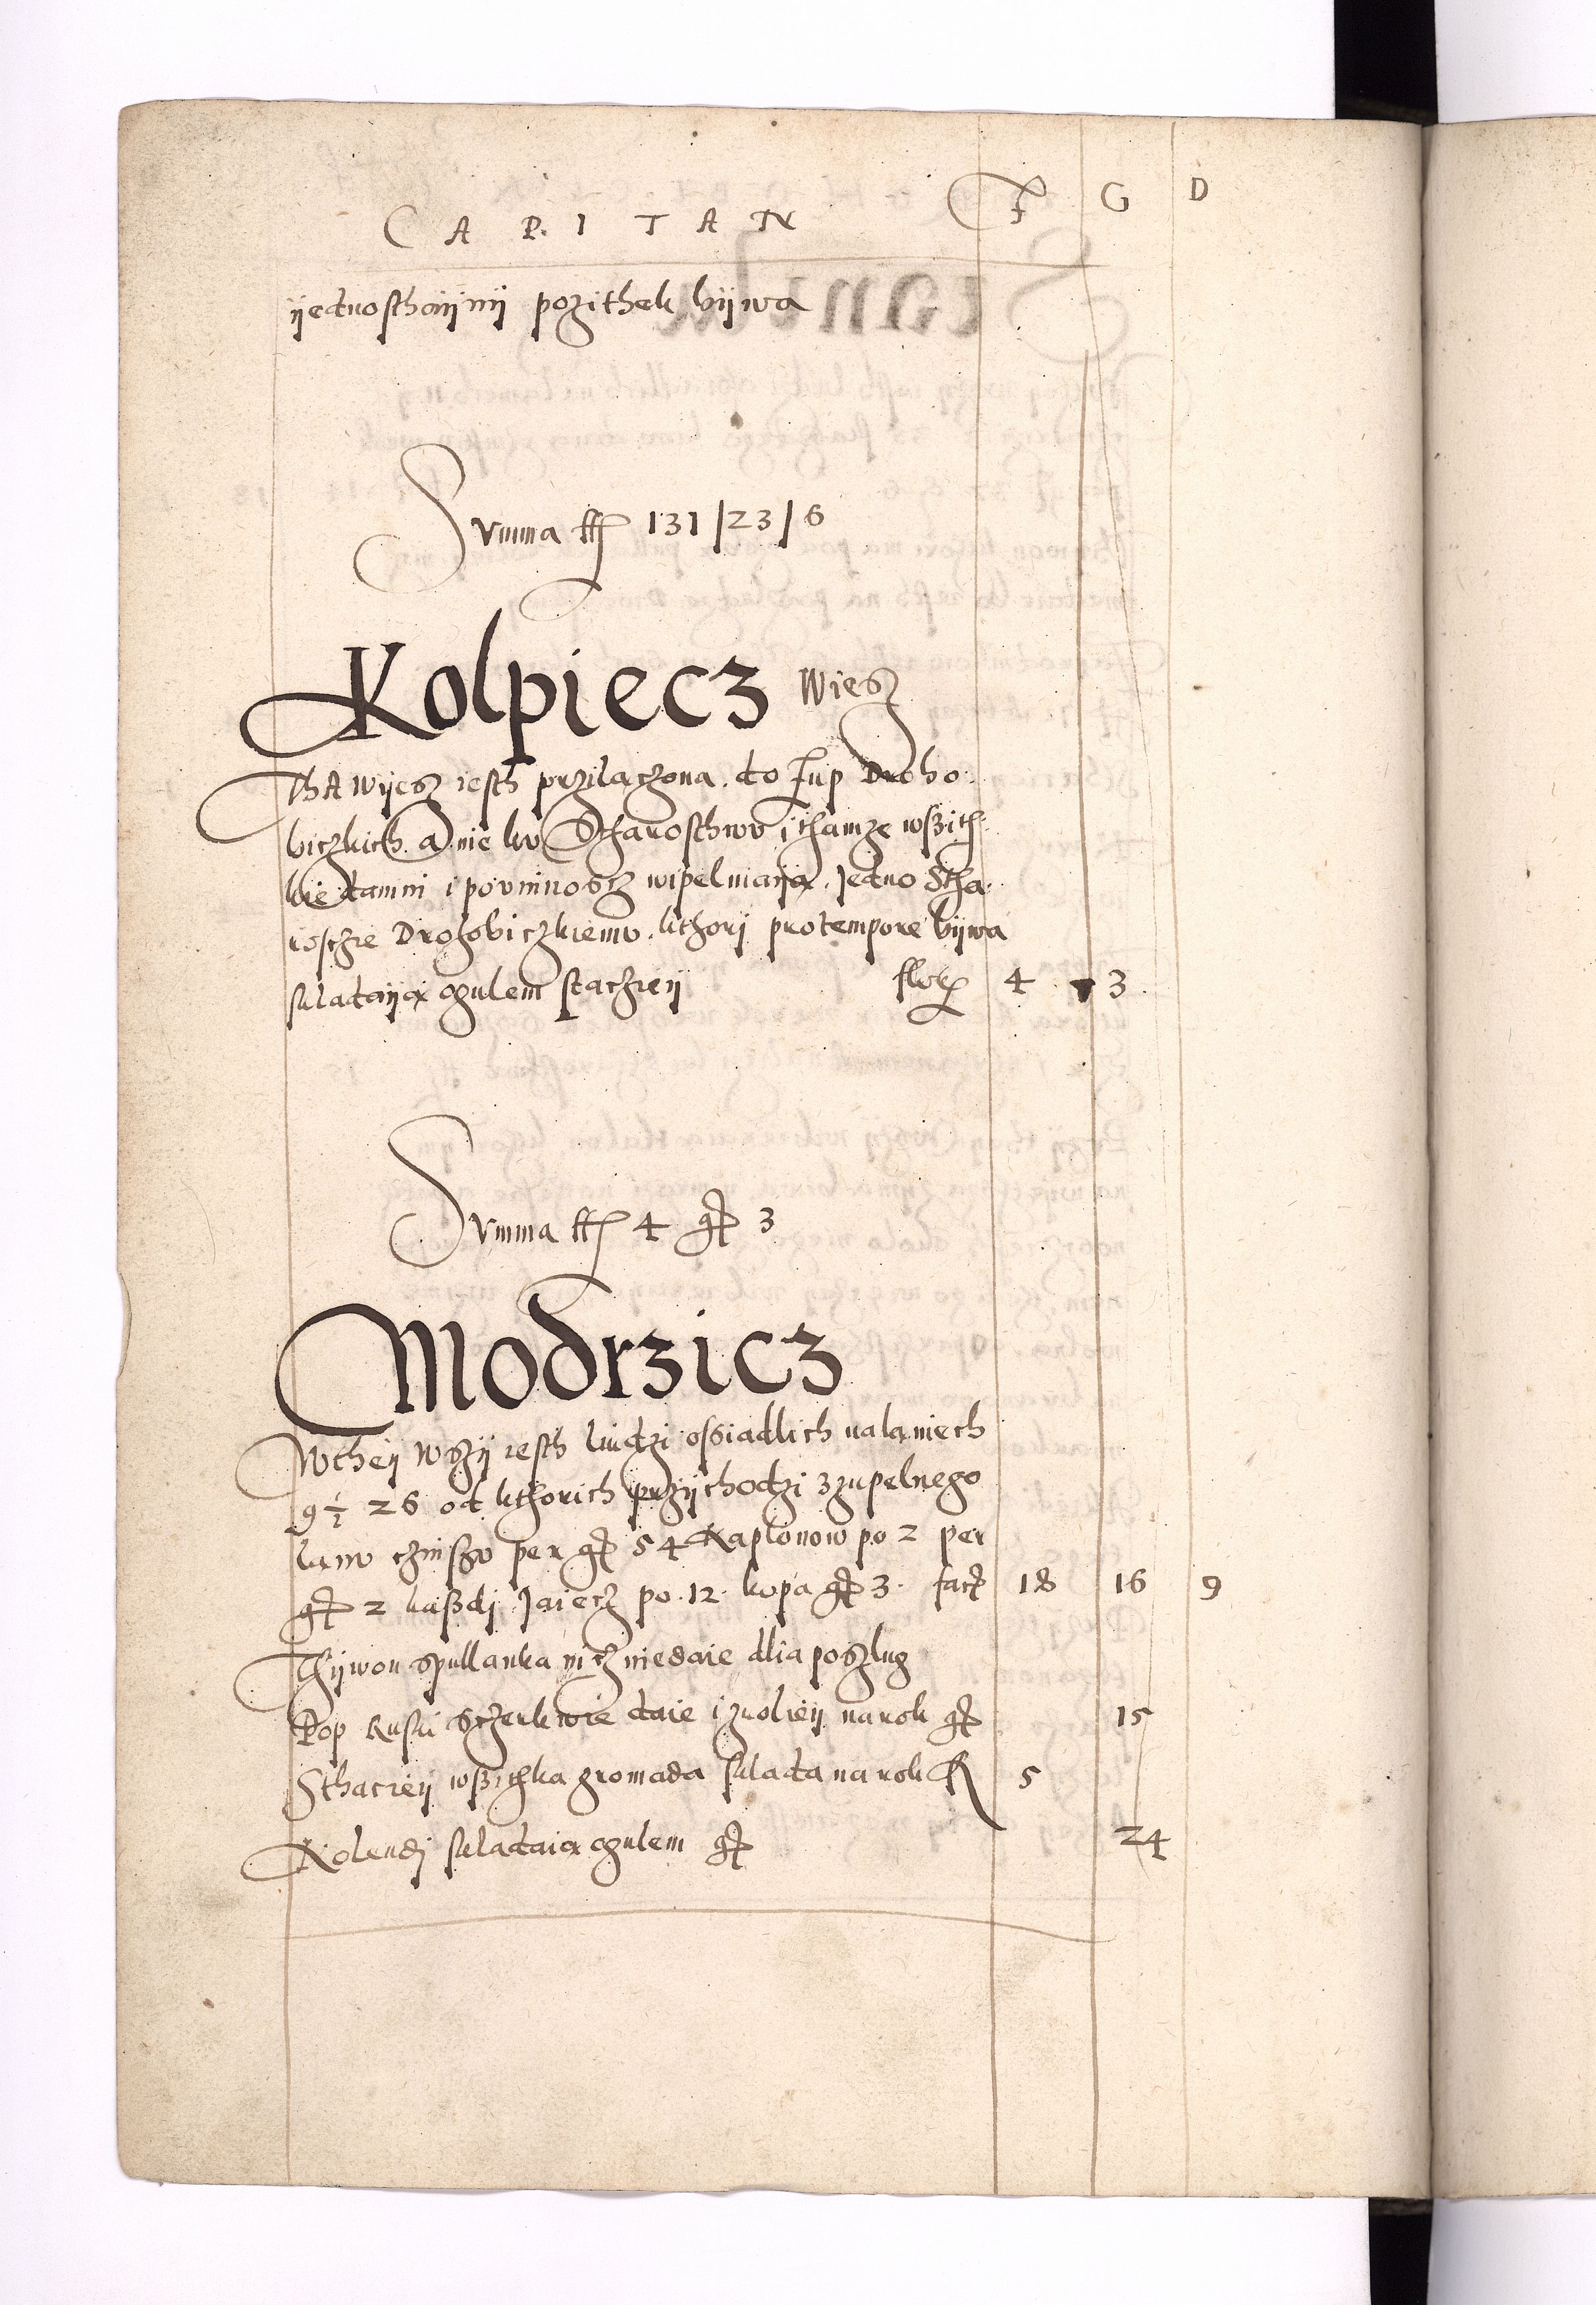 CAPITAN F G D
ijednosthaijnij pozithek bijwa
Summa ff 131/23/6
Kolpiecz Wiesz
ThA wijesz iesth przilaczona do Zup Droho
biczkich a nie kv Stharosthwv i thamze wßith
kie damni i povinnoscz wipelniaija. Jedno Stha
rosczie Drohobiczkiemv kthori protempore bijwa
skladaija ogulem staczieij flor 4 3
Summa ff 4 gr 3
Modrzicz
Wtheij Wszij iesth liudzi ossiadlich nalaniech
9 1/2 26 od kthorich przijchodzi zzupelnego
lanv czinszv per gr 54 Kaplonow po 2 per
gr 2 kaßdj Jaiecz po 12 kopa gr 3 fact 18 16 9
Thijwon spullanka nicz niedaie dlia poszlug
Pop Ruski Sczerkwie daie izrolieij na rok gr 15
Sthacieij wßithka gromada sklada na rok fl 5
Kolendj skladaia ogulem gr 24